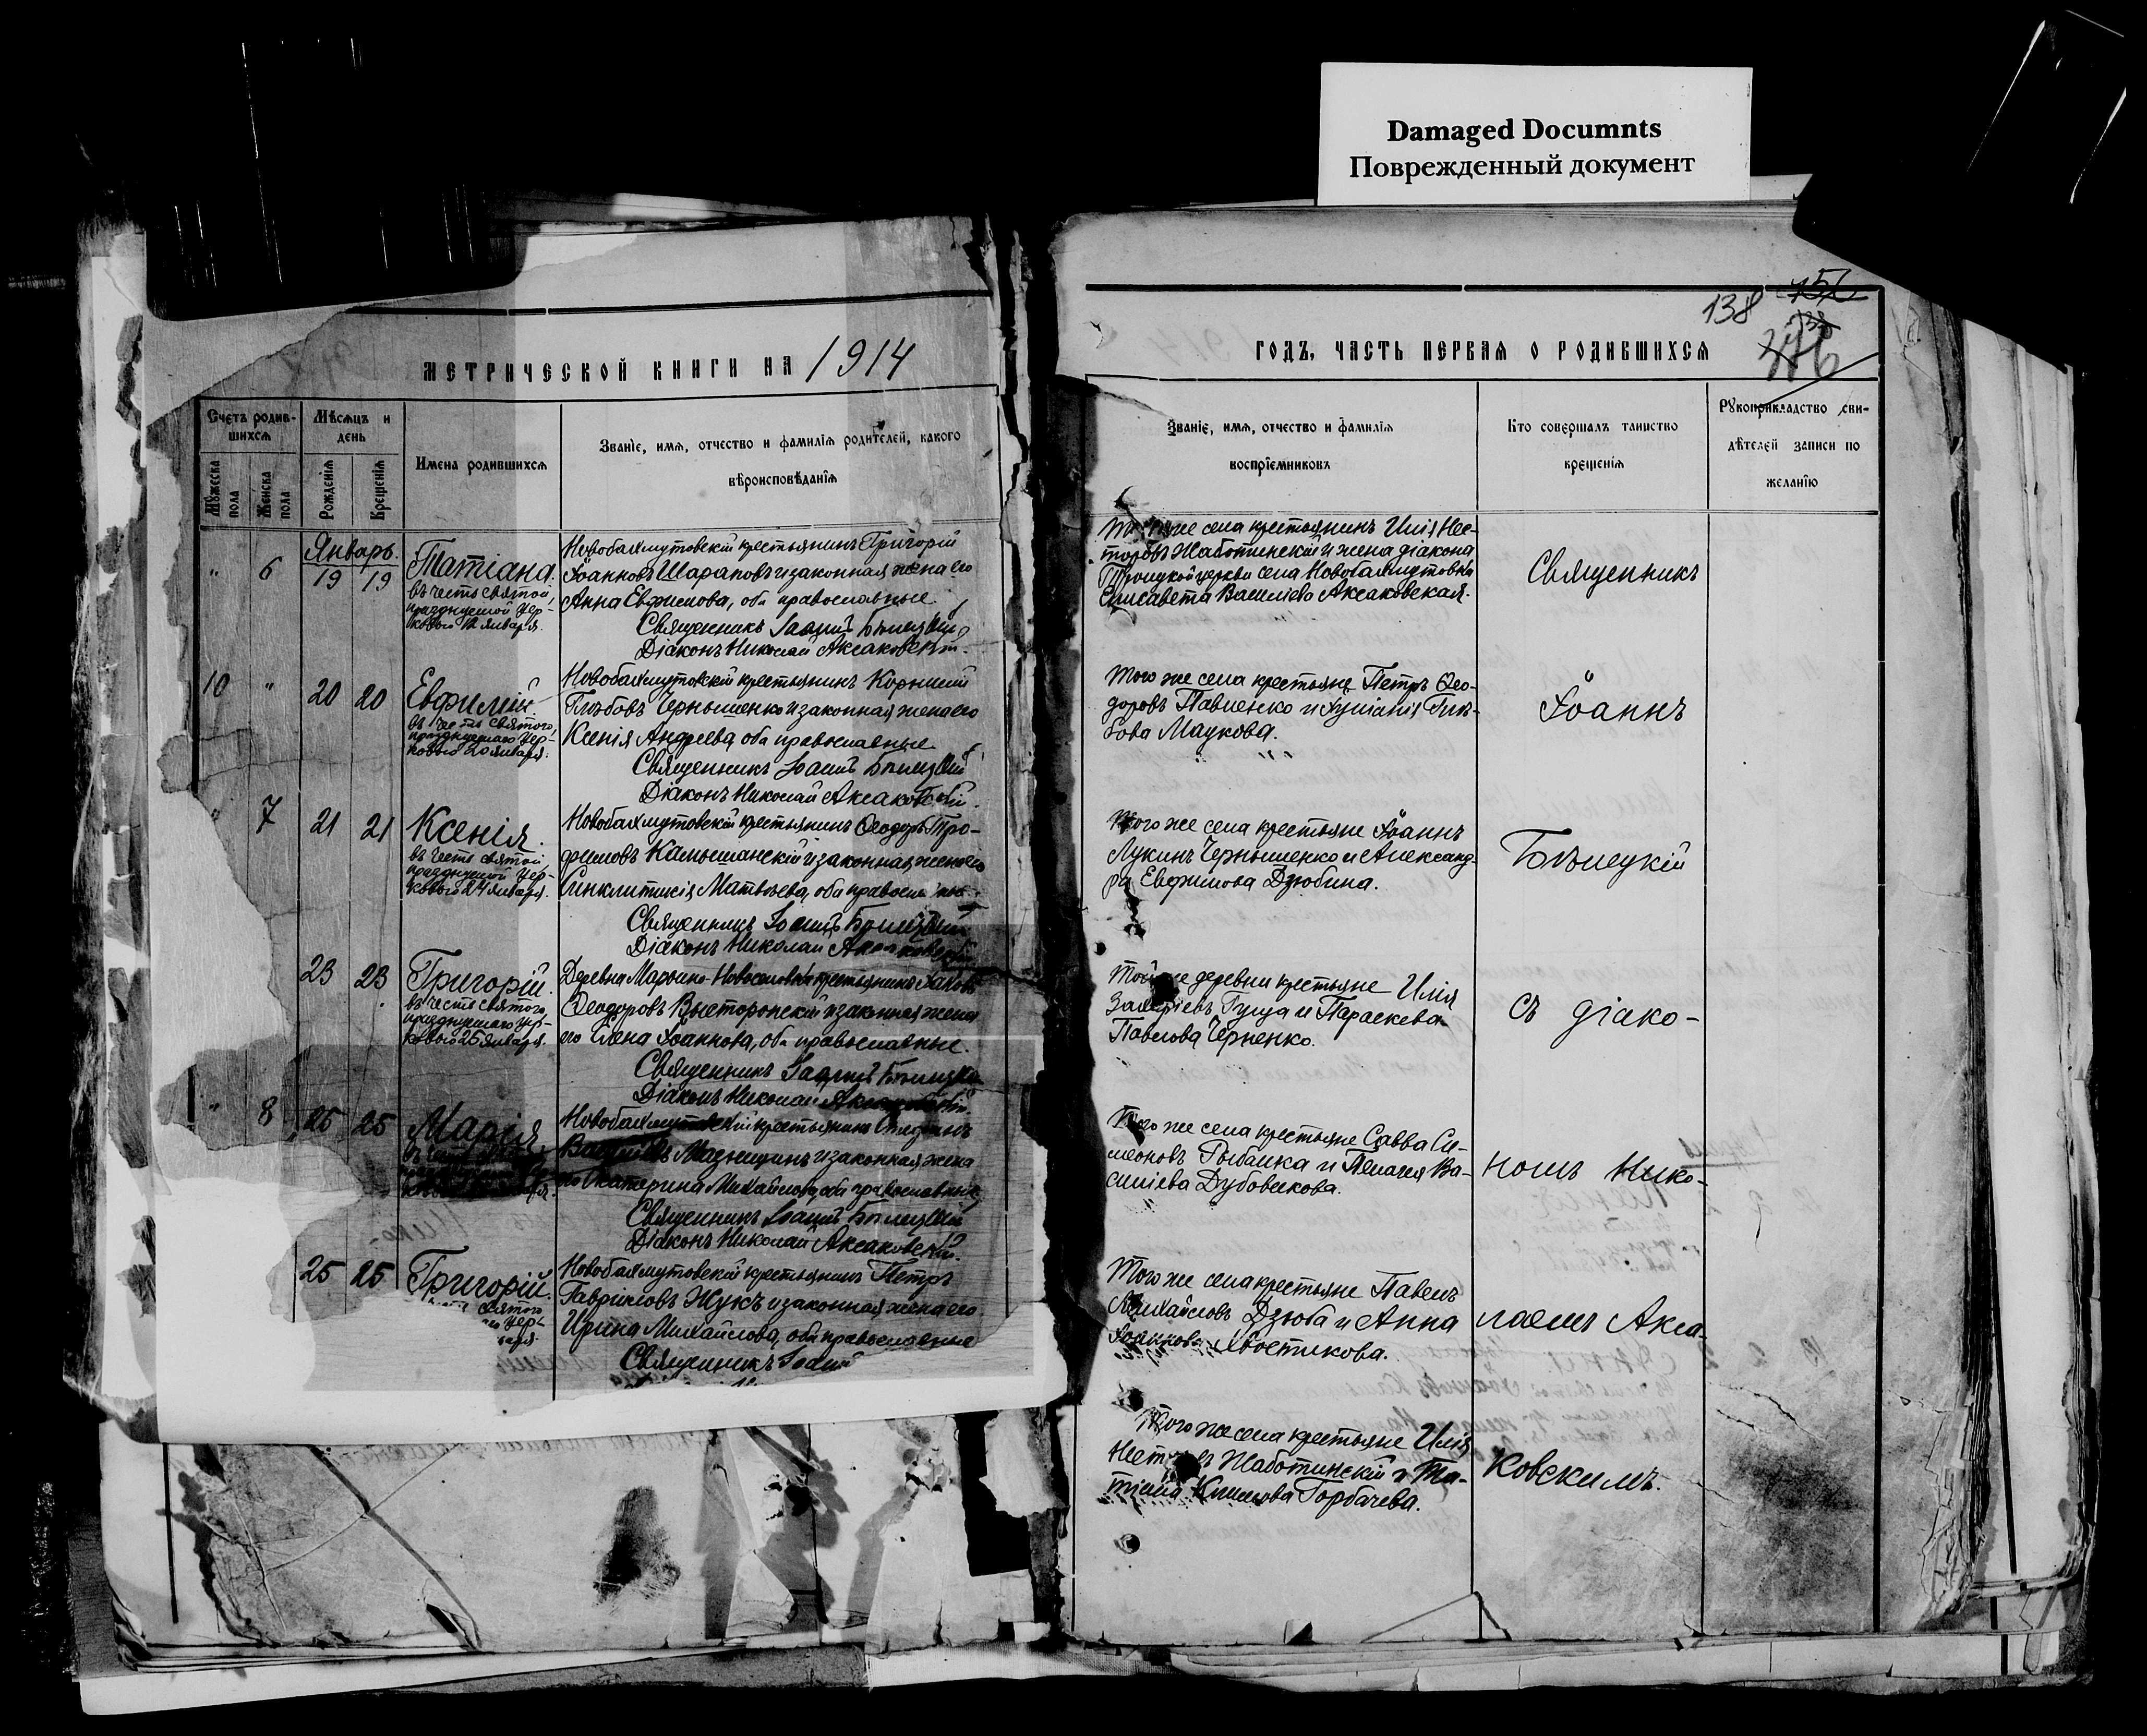 Damaged Documnts
Поврежденный документ
138
МЕТРИЧЕСКОЙ КНИГИ НА 1914
Счетъ родив-
шихся
Мужеска пола
Женска пола
Мѣсяцъ и
день
Рожденія
Крещенія
Имена родившихся
Званіе, имя, отчество и фамилія родителей, какого
вѣроисповѣданія
Январь.
" 6 19 19
Татіана.
въ честь святой,
празднуемой Цер-
ковью 12 января.
Новобахмутовскій крестьянинъ Григорій
Іоанновъ Шараповъ и законная жена его
Анна Евфимова, оба православные.
Священникъ Іоаннъ Бѣлецкій
Діаконъ Николай Аксаковскій.
10 " 20 20
Евфимій.
въ честь святого,
празднуемаго Цер-
ковью 20 января.
Новобахмутовскій крестьянинъ Корнилій
Глѣбовъ Чернышенко и законная жена его
Ксенія Андреева, оба православные.
Священникъ Іоаннъ Бѣлецкій
Діаконъ Николай Аксаковскій.
" 7 21 21
Ксенія.
въ честь святой,
празднуемой Цер-
ковью 24 января.
Новобахмутовскій крестьянинъ Ѳеодоръ Тро-
фимовъ Камышанскій и законная жена его
Синклитикія Матвѣева, оба православные.
Священникъ Іоаннъ Бѣлецкій
Діаконъ Николай Аксаковскій
23 23
Григорій.
въ честь святого,
празднуемаго Цер-
ковью 25 января.
Деревни Марьино-Новоселовки крестьянинъ Іаковъ
Ѳеодоровъ Высторопскій и законная жена
его Елена Іоаннова, оба православные.
Священникъ Іоаннъ Бѣлецкій
Діаконъ Николай Аксаковскій.
" 8 25 25
Марія
Новобахмутовскій крестьянинъ Стефанъ
Васильевъ и законная жена
его Екатерина Михайлова, оба православные.
Священникъ Іоаннъ Бѣлецкій
Діаконъ Николай Аксаковскій.
25 25
Григорій.
святого
Цер-
Новобахмутовскій крестьянинъ Петръ
Гавриловъ Жукъ и законная жена его
Ирина Михайлова, оба православные
Священникъ Іоаннъ
ГОДЪ, ЧАСТЬ ПЕРВАЯ О РОДИВШИХСЯ
Званіе, имя, отчество и фамилія
воспріемниковъ
Кто совершалъ таинство
крещенія
Рукоприкладство сви-
дѣтелей записи по
желанію
Того же села крестьянинъ Илія Нес-
торовъ Жаботинскій и жена діакона
Троицкой церкви села Новобахмутовки
Елисавета Василіева Аксаковская.
Священникъ
Того же села крестьяне Петръ Ѳео-
доровъ Павленко и Іуліанія Глѣ-
бова Маукова.
Іоаннъ
Того же села крестьяне Іоаннъ
Лукинъ Чернышенко и Александ-
ра Евфимова Дзюбина.
Бѣлецкій
Той же деревни крестьяне Илія
Захаріевъ Гуща и Параскева
Павлова Черненко.
съ діако-
Того же села крестьяне Савва Си-
меоновъ Рыбалка и Пелагея Ва-
силіева Дубовикова.
номъ Нико-
Того же села крестьяне Павелъ
Михайловъ Дзюба и Анна
Іоаннова Хвостикова.
лаемъ Акса-
Того же села крестьяне Илія
Несторовъ Жаботинскій и Та-
тіана Горбачева.
ковскимъ.